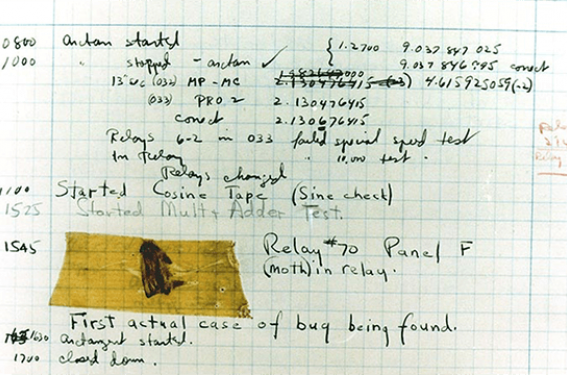 0800 arctan started { 1.2700 9.037 847 025
1000 " stopped - arctan ✓ 9.037 846 995 conect
13"uc (032) MP - MC 2.130476415 (-3) 4.615925059(-2)
(033) PRO 2 2.130476415
conect 2.130676415
Relays 6-2 in 033 failed special speed test
In Relay " 10,000 test .
Relays changed
1100 Started Cosine Tape (Sine check)
1525 Started Mult + Adder Test.
1545 Relay #70 Panel F
(moth) in relay.
First actual case of bug being found.
1630 arctangent started.
1700 closed down.